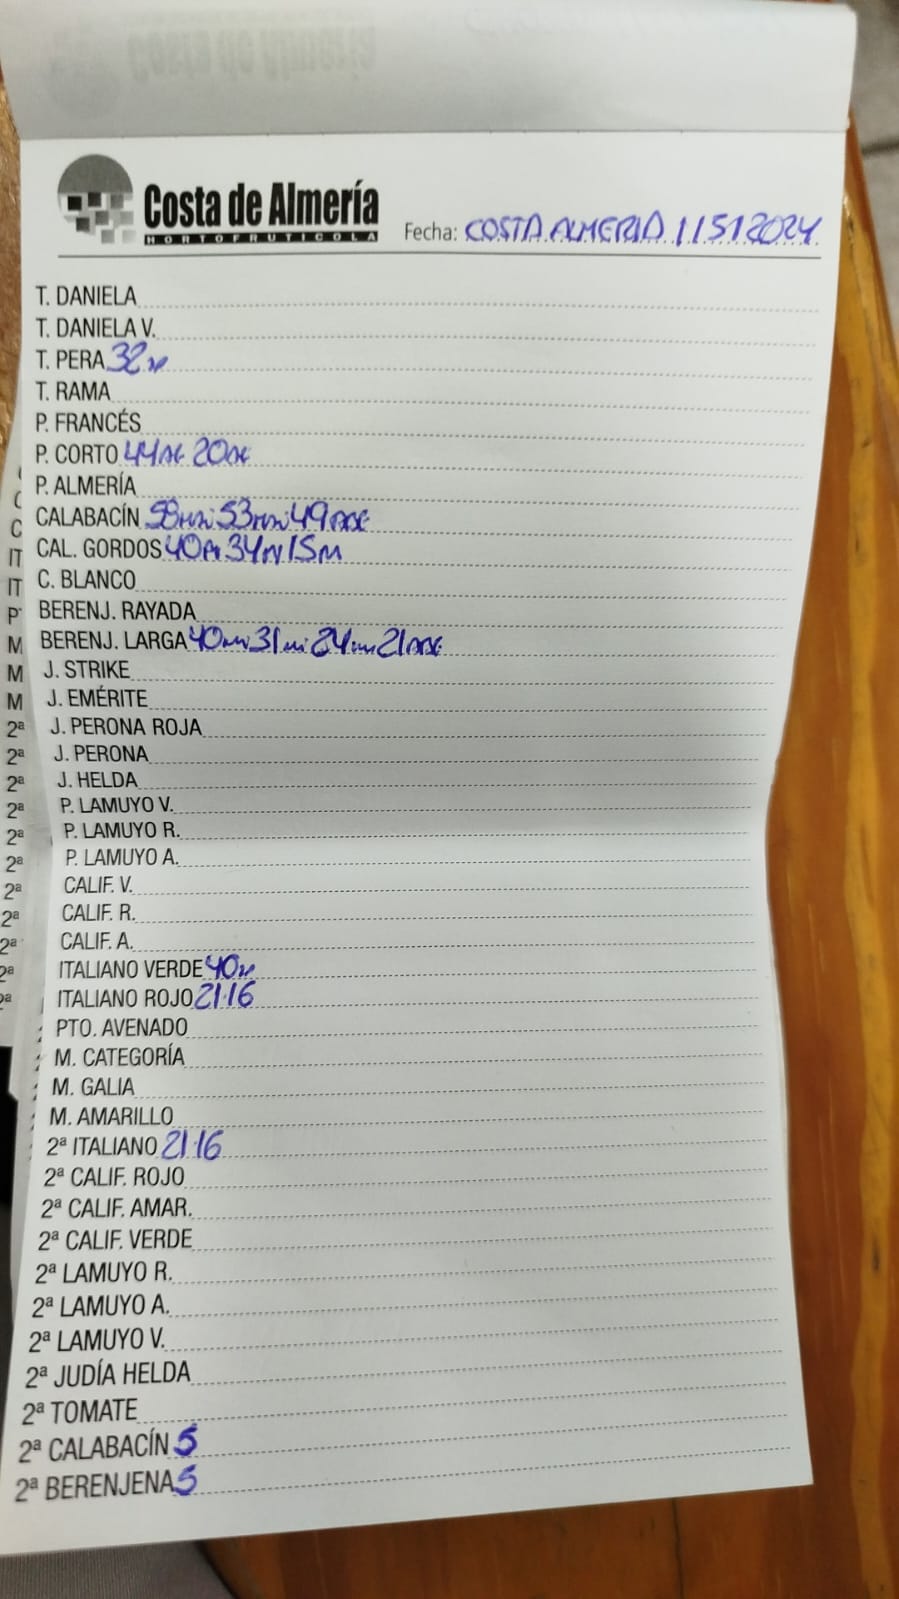 Costa de Almería
HORTOFRUTICOLA
Fecha: COSTA ALMERIA 11512024
T. DANIELA
T. DANIELA V.
T. PERA 32
T. RAMA
P. FRANCÉS
P. CORTO 44 20
P. ALMERÍA
CALABACÍN 58 53 49
CAL. GORDOS 40 34 15M
C. BLANCO
BERENJ. RAYADA
BERENJ. LARGA 40 31 24 21
J. STRIKE
J. EMÉRITE
J. PERONA ROJA
J. PERONA
J. HELDA
P. LAMUYO V.
P. LAMUYO R.
P. LAMUYO A.
CALIF. V.
CALIF. R.
CALIF. A.
ITALIANO VERDE 40
ITALIANO ROJO 21·16
PTO. AVENADO
M. CATEGORÍA
M. GALIA
M. AMARILLO
2ª ITALIANO 21·16
2ª CALIF. ROJO
2ª CALIF. AMAR.
2ª CALIF. VERDE
2ª LAMUYO R.
2ª LAMUYO A.
2ª LAMUYO V.
2ª JUDÍA HELDA
2ª TOMATE
2ª CALABACÍN 5
2ª BERENJENA 5